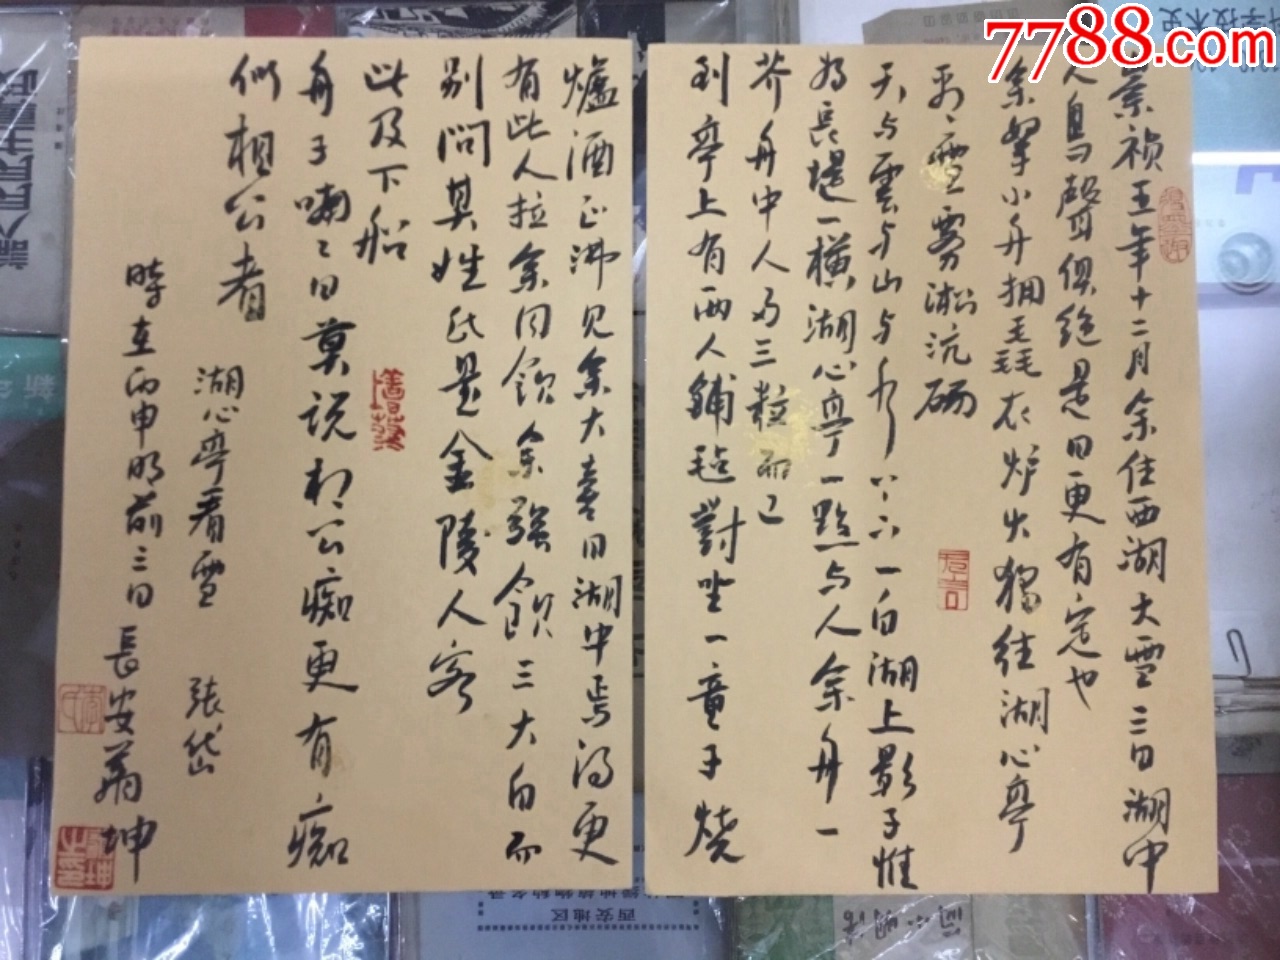 7788.com
崇禎五年十二月余住西湖大雪三日湖中
人鳥聲俱絕是日更有定也
余拏小舟拥毳衣炉火獨往湖心亭
看雪雾淞沆碭
天与雲与山与水上下一白湖上影子惟
为長堤一橫湖心亭一點与人余舟一
芥舟中人为三粒而已
到亭上有两人鋪毡對坐一童子燒
爐酒正沸見余大喜曰湖中焉得更
有此人拉余同飲余強飲三大白而
别問其姓氏是金陵人客
此及下船
舟子喃々曰莫说相公痴更有痴
似相公者
湖心亭看雪 張岱
時在丙申明前三日長安萧坤
論人民民主專政
科学技术史
西安地区